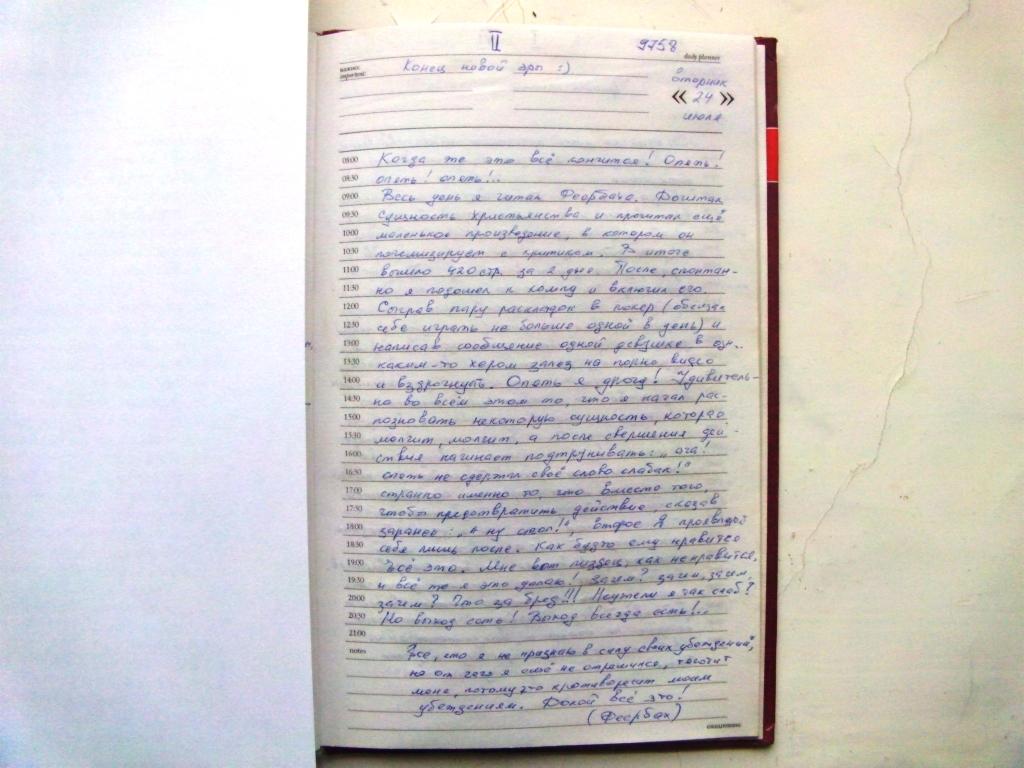 II
9758
daily planner
важно:
important:
Конец новой эры :)
Вторник
« 24 »
июля
08:00 Когда же это всё кончится! Опять!
08:30 опять! опять!..
09:00 Весь день я читал Феербаха. Дочитал
09:30 Сущность христьянства и прочитал ещё
10:00 маленькое произведение, в котором он
10:30 полемизирует с критиком. В итоге
11:00 вышло 420 стр. за 2 дня. После, спонтан-
11:30 но я подошел к компу и включил его.
12:00 Сыграв пару раскладок в покер (обещая
12:30 себе играть не больше одной в день) и
13:00 написав сообщение одной девушке в
13:30 каким-то хером залез на порно видео
14:00 и вздрогнуть. Опять я дрочу! Удивитель-
14:30 но во всём этом то, что я начал рас-
15:00 позновать некоторую сущность, которая
15:30 молчит, молчит, а после свершения дей-
16:00 ствия начинает подтрунивать: „ага!
16:30 опять не сдержал своё слово слабак!"
17:00 странно именно то, что вместо того,
17:30 чтобы предотвратить действие, сказав
18:00 заранее: „А ну стоп!", второе Я проявляет
18:30 себя лишь после. Как будто ему нравится
19:00 всё это. Мне вот пиздец, как не нравится,
19:30 и всё же я это делаю! Зачем? зачем, зачем,
20:00 зачем? Что за бред!!! Неужели я так слаб?
20:30 Но выход есть! Выход всегда есть!..
21:00
notes Все, что я не признаю в силу своих убеждений,
но от чего я ещё не отрешился, тяготит
меня, потому что противоречит моим
убеждениям. Долой всё это!
(Феербах)